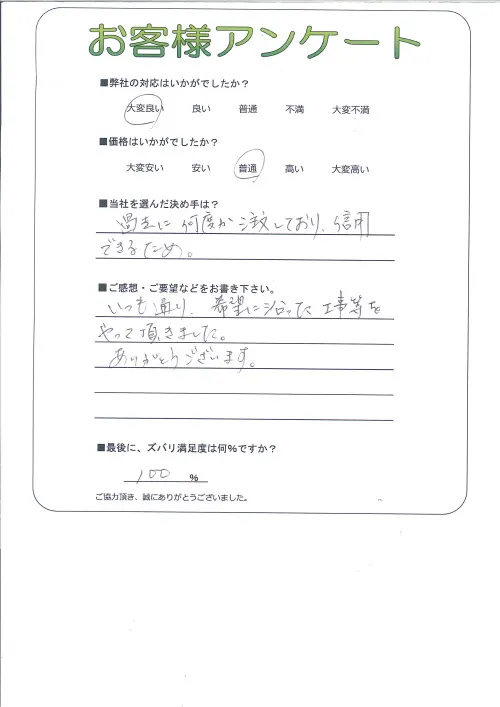 お客様アンケート
■弊社の対応はいかがでしたか？
大変良い 良い 普通 不満 大変不満
■価格はいかがでしたか？
大変安い 安い 普通 高い 大変高い
■当社を選んだ決め手は？
過去に何度か注文しており、信用
できるため。
■ご感想・ご要望などをお書き下さい。
いつも通り、希望に沿った工事等を
やって頂きました。
ありがとうございます。
■最後に、ズバリ満足度は何％ですか？
100 ％
ご協力頂き、誠にありがとうございました。